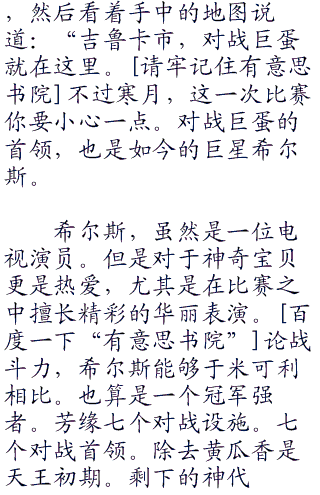 ，然后看着手中的地图说
道：“吉鲁卡市，对战巨蛋
就在这里。[请牢记住有意思
书院]不过寒月，这一次比赛
你要小心一点。对战巨蛋的
首领，也是如今的巨星希尔
斯。
希尔斯，虽然是一位电
视演员。但是对于神奇宝贝
更是热爱，尤其是在比赛之
中擅长精彩的华丽表演。[百
度一下“有意思书院”]论战
斗力，希尔斯能够于米可利
相比。也算是一个冠军强
者。芳缘七个对战设施。七
个对战首领。除去黄瓜香是
天王初期。剩下的神代